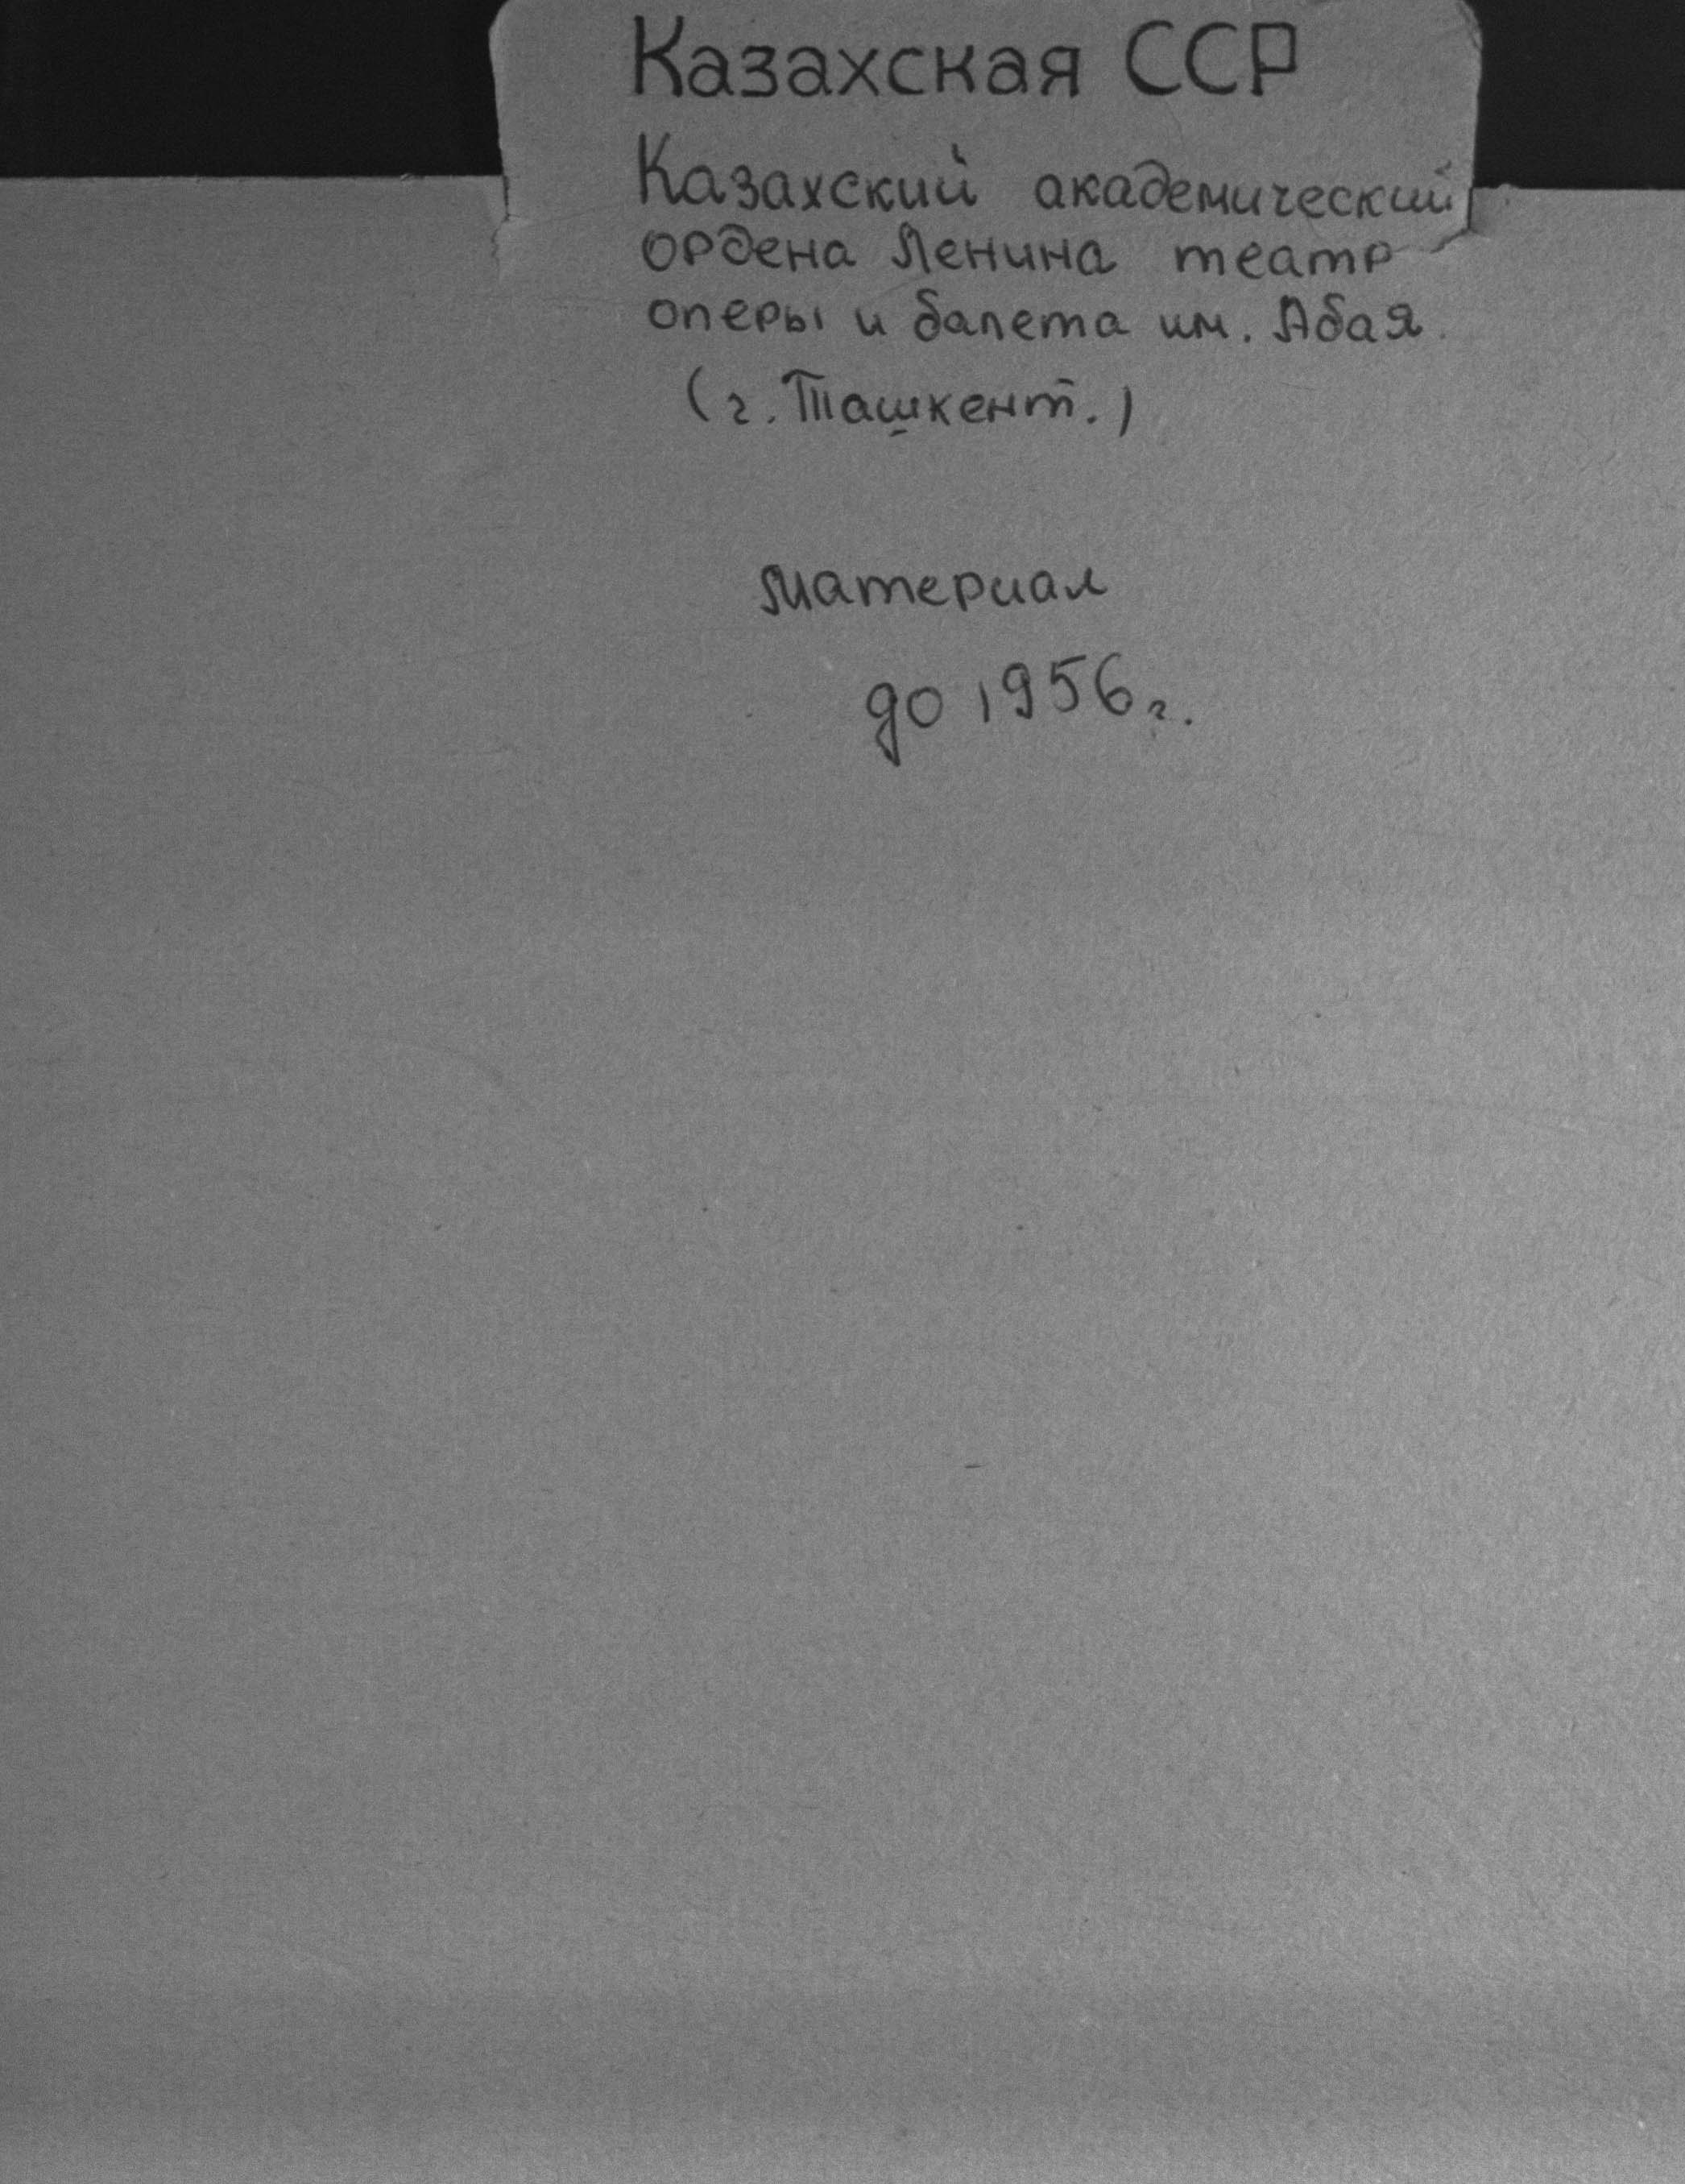 Казахская ССР
Казахский академический
ордена Ленина театр
оперы и балета им. Абая.
(г. Ташкент.)
Материал
до 1956 г.